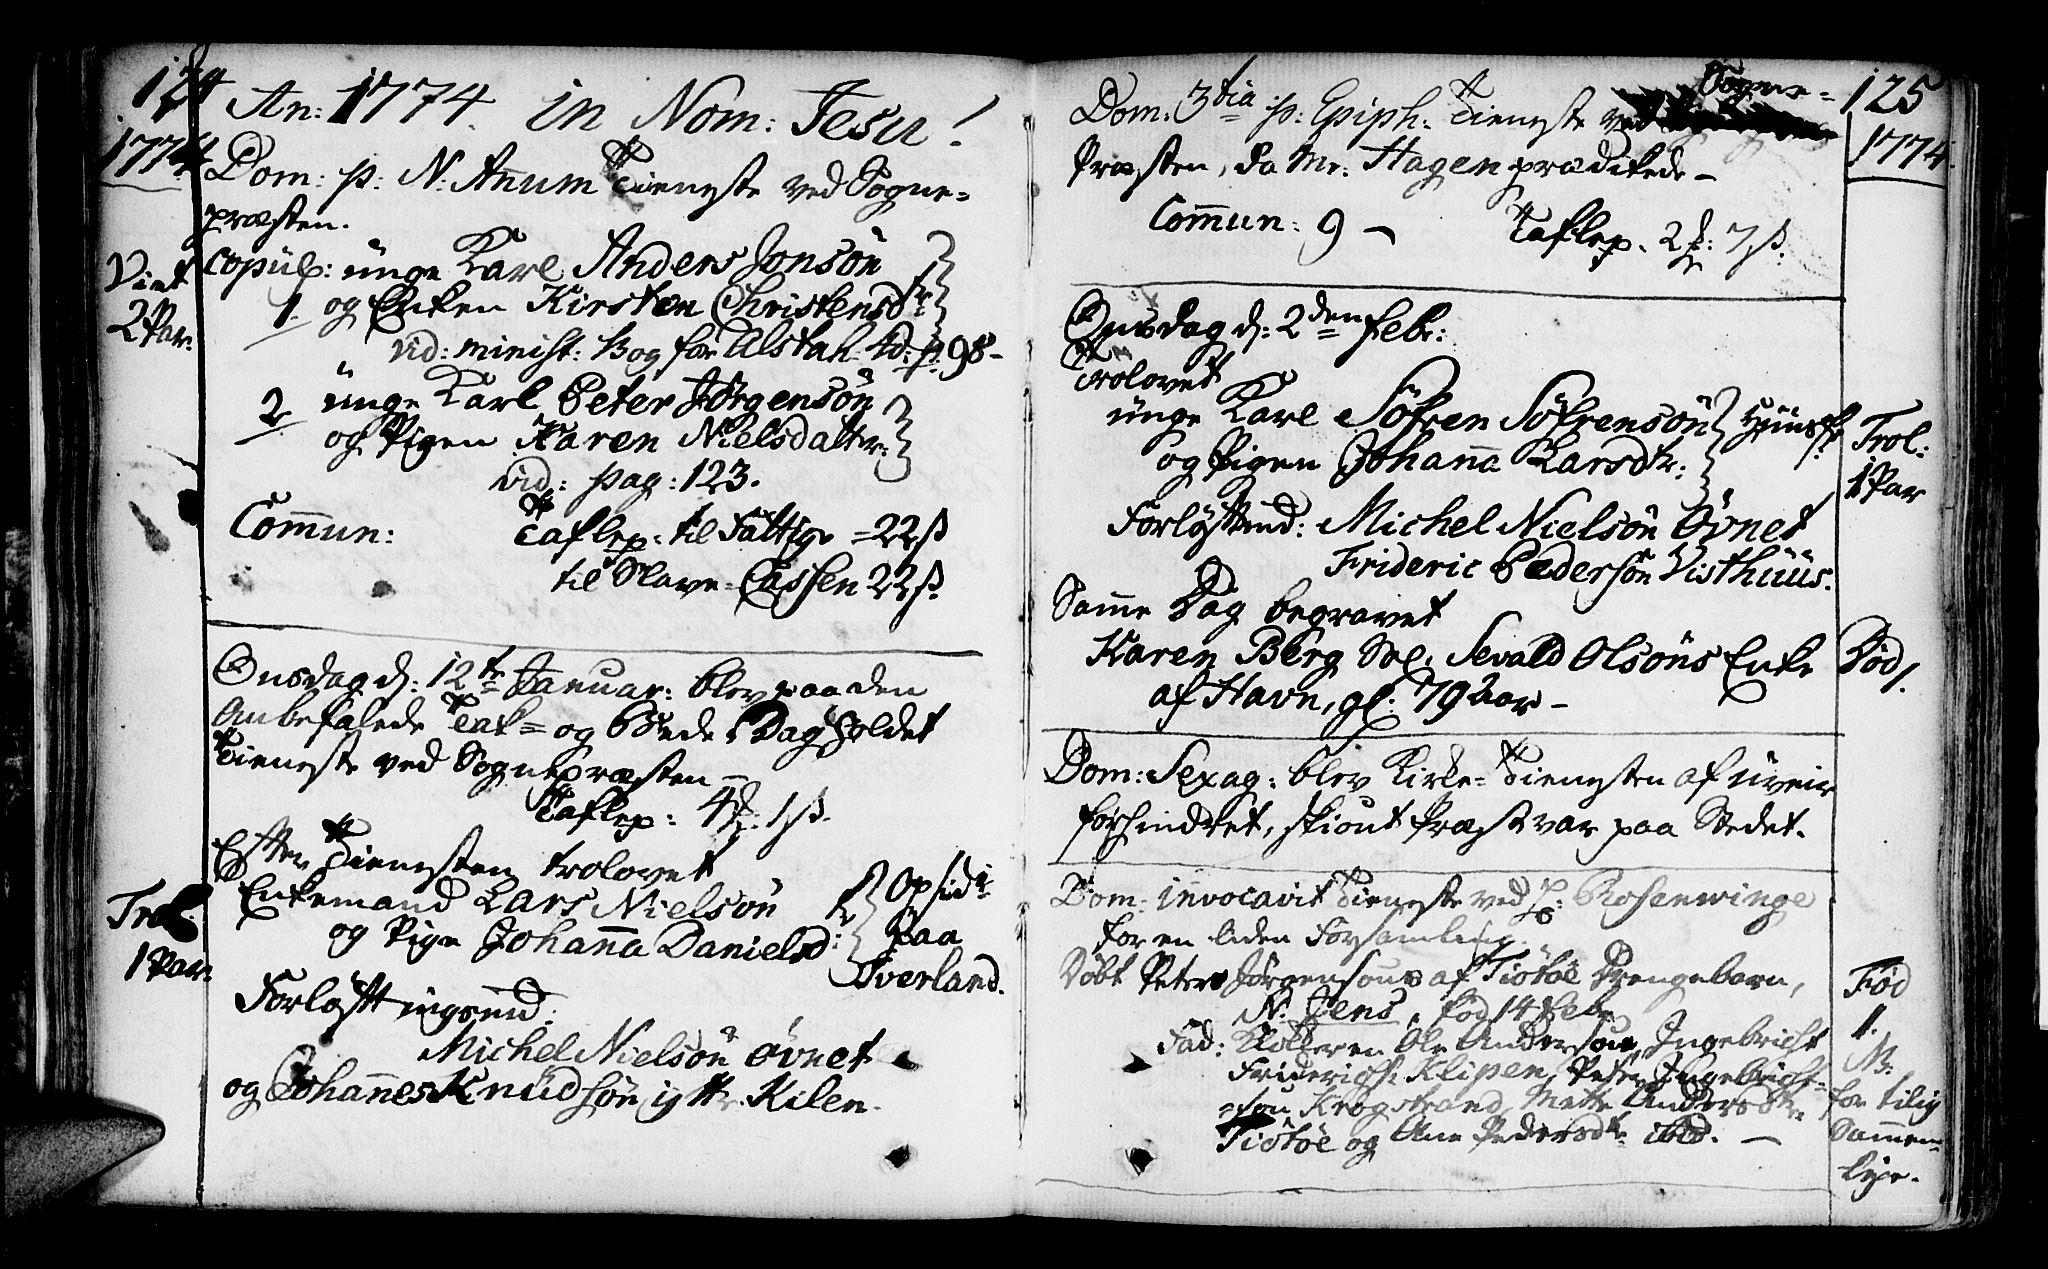 124
An: 1774 in Nom: Jesu!
1774
Dom: p: N: Anum Tieneste ved Sogne-
præsten.
Viet
2 Par.
Copul: unge Karl Anders Jonsøn
1. og Enken Kirsten Christensd
vid: minist: Bog for Alstah: p: 98-
2 unge Karl Peter Jørgensøn
og Pigen Karen Nielsdattr:
vid: pag: 123.
Commun: Taflep. til Fattige = 22 ß
til Slave-Cassen 22 ß.
Onsdag d: 12te Januar: blev paa den
Anbefalede Tak= og Bede Dag Holdet
Tieneste ved Sognepræsten -
Taflep: 4 1 ß.
Efter Tienesten trolovet
Trol.
1 Par.
Enkemand Lars Nielsøn
og Pige Johanna Danielsd:
Opsidr
paa
Øverland.
Forløftningsmd:
Michel Nielsøn Øvnet
og Johannes Knudsøn Kilen.
125
1774.
Dom: 3tia p: Epiph: Tieneste ved Sogne-
Præsten, da Mr. Hagen prædikede -
Commun: 9 - Taflep. 2 7 ß.
Onsdag d: 2den Febr:
Trolovet
unge Karl Søfren Søfrensøn
og Pigen Johanna Larsdtr:
Trol:
1 Par
Forløftmd: Michel Nielsøn Øvnet
Frideric Pedersøn Visthuus.
Samme Dag begravet
Karen Berg Sal. Sevald Olsøns Enke
af Havn, gl: 79 2 aar -
Død 1.
Dom: Sexag: blev Kirke-Tienesten af uveir
forhindret, skiønt Præst var paa Stedet.
Dom: invocavit Tieneste ved Hr: Rosenwinge
for en liden Forsamling.
Døbt Peter Jørgensøns af Tiøtøe Drengebarn,
N: Jens, fød 14 Febr
Fød
1.
M:
for tilig
Sammen-
leje.
Fad: Ole Andersøn, Ingebricht
Friderichs: Klipen, Peter Ingebricht-
søn Krogstrand, Mette Andersdtr
Tiøtøe og Ane Pedersdtr ibid. -